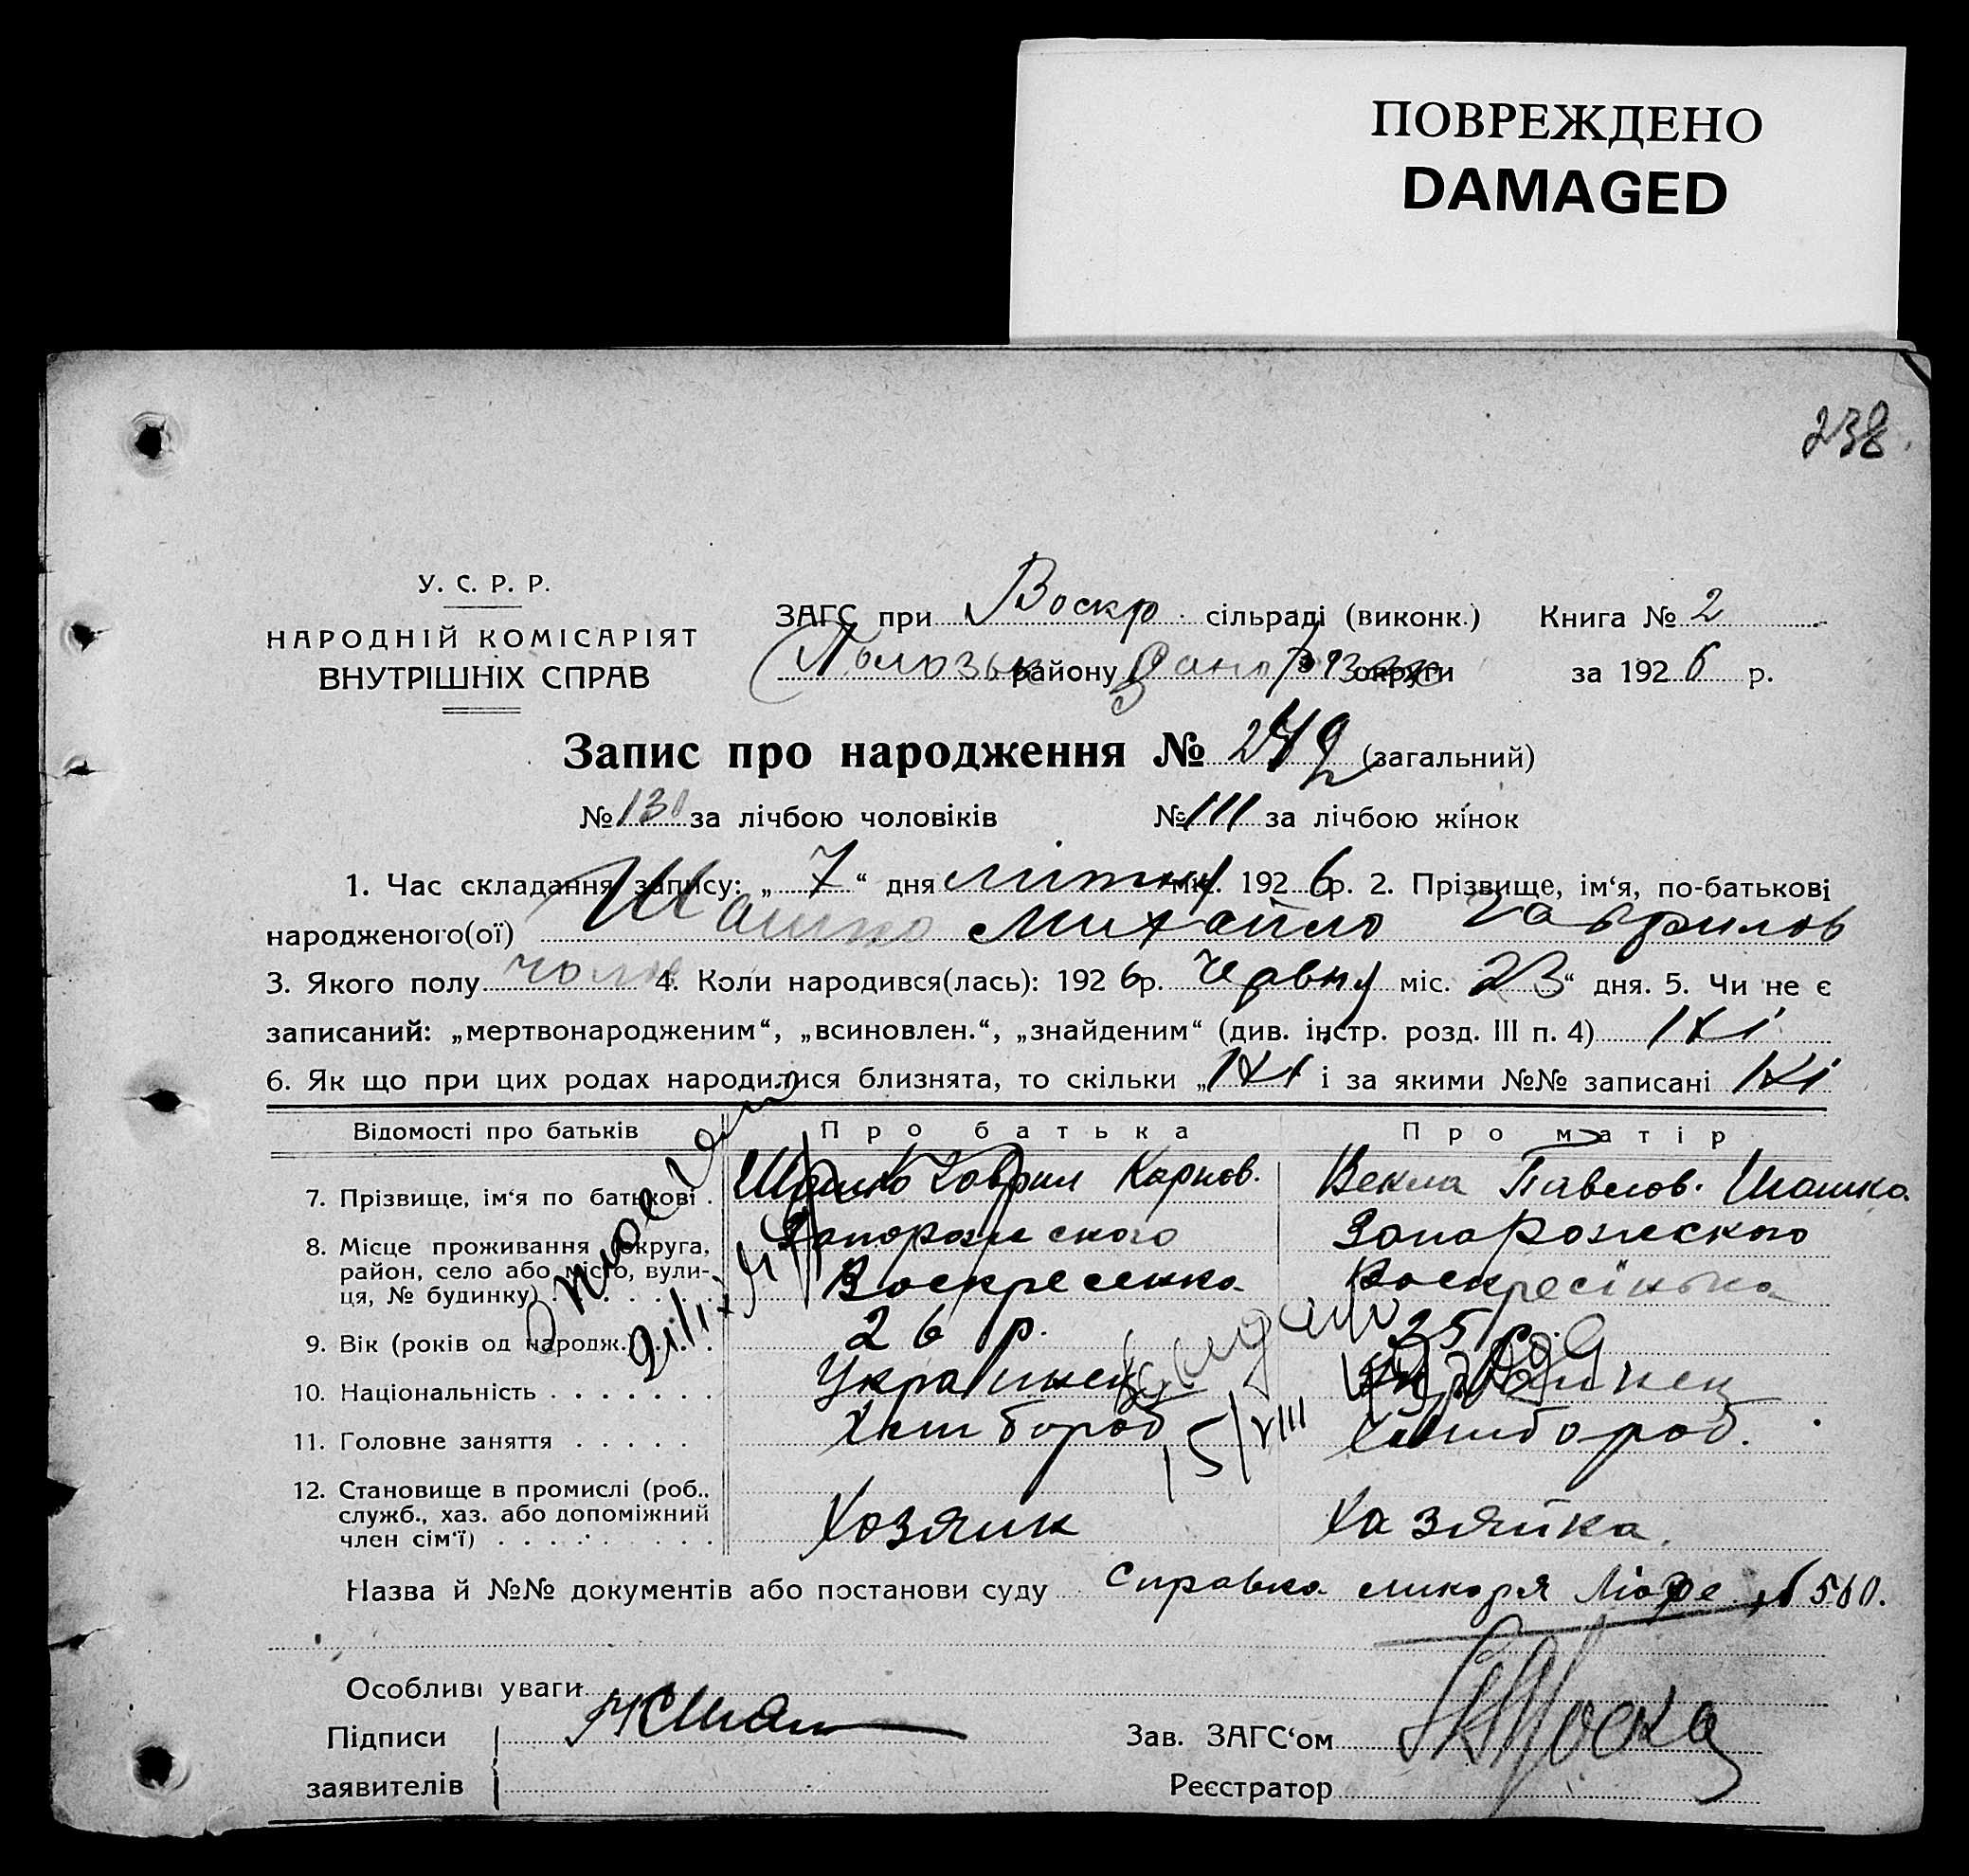 ПОВРЕЖДЕНО
DAMAGED
238.
У. С. Р. Р.
НАРОДНІЙ КОМІСАРІЯТ
ВНУТРІШНІХ СПРАВ
ЗАГС при Воскр. сільраді (виконк.) Книга № 2
району округи за 1926 р.
Запис про народження № (загальний)
№ 131 за лічбою чоловіків № 111 за лічбою жінок
1. Час складання запису: „ 7 “ дня міс. 1926 р. 2. Прізвище, ім‘я, по-батькові
народженого(ої) Шашко Михайло Гаврилов
3. Якого полу чолов 4. Коли народився(лась): 1926 р. Червня міс. 23 “ дня. 5. Чи не є
записаний: „мертвонародженим“, „всиновлен.“, „знайденим“ (див. інстр. розд. III п. 4) Ні
6. Як що при цих родах народилися близнята, то скільки „ Ні і за якими №№ записані Ні
Відомості про батьків Про батька Про матір
7. Прізвище, ім‘я по батькові . Шашко Гаврил Карпов. Векла Павлов. Шашка
8. Місце проживання (округа, Запорожского Запорожского
район, село або місто, вули-
ця, № будинку) . . . . . . Воскресенка Воскресінька
9. Вік (років од народж.) . . . . 26 р. 25 р.
10. Національність . . . . . . . Украинец Украинец
11. Головне заняття . . . . . Хлибороб Хлибороб.
15/VIII
12. Становище в промислі (роб.,
служб., хаз. або допоміжний
член сім‘ї) . . . . . . . . . Хозяин Хазяйка.
Назва й №№ документів або постанови суду Справка ликаря № 560.
Особливі уваги
Підписи
заявителів
Зав. ЗАГС‘ом
Реєстратор